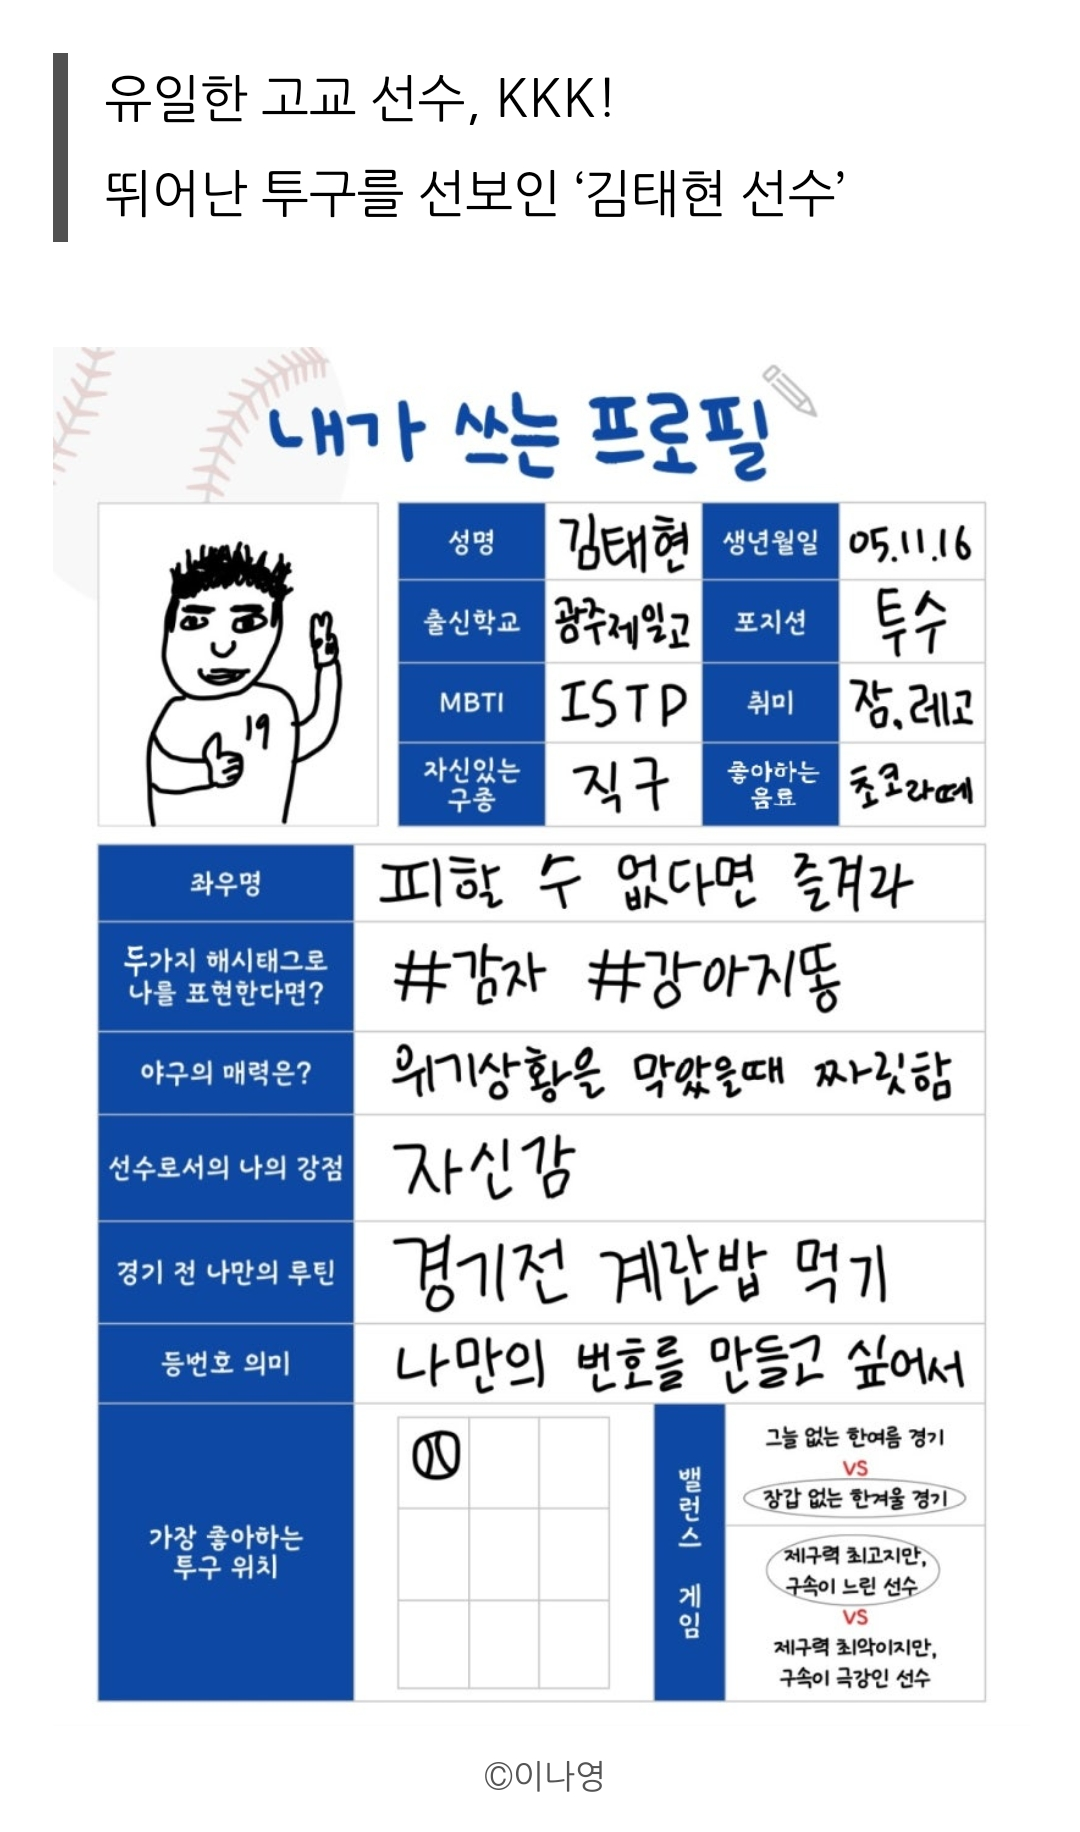 유일한 고교 선수, KKK!
뛰어난 투구를 선보인 ‘김태현 선수’
내가 쓰는 프로필
19
성명 김태현 생년월일 05.11.16
출신학교 광주제일고 포지션 투수
MBTI ISTP 취미 잠, 레고
자신있는
구종
직구
좋아하는
음료
초코라떼
좌우명 피할 수 없다면 즐겨라
두가지 해시태그로
나를 표현한다면?
#감자 #강아지똥
야구의 매력은? 위기상황을 막았을때 짜릿함
선수로서의 나의 강점 자신감
경기 전 나만의 루틴 경기전 계란밥 먹기
등번호 의미 나만의 번호를 만들고 싶어서
가장 좋아하는
투구 위치
밸런스 게임
그늘 없는 한여름 경기
VS
장갑 없는 한겨울 경기
제구력 최고지만,
구속이 느린 선수
VS
제구력 최악이지만,
구속이 극강인 선수
©이나영